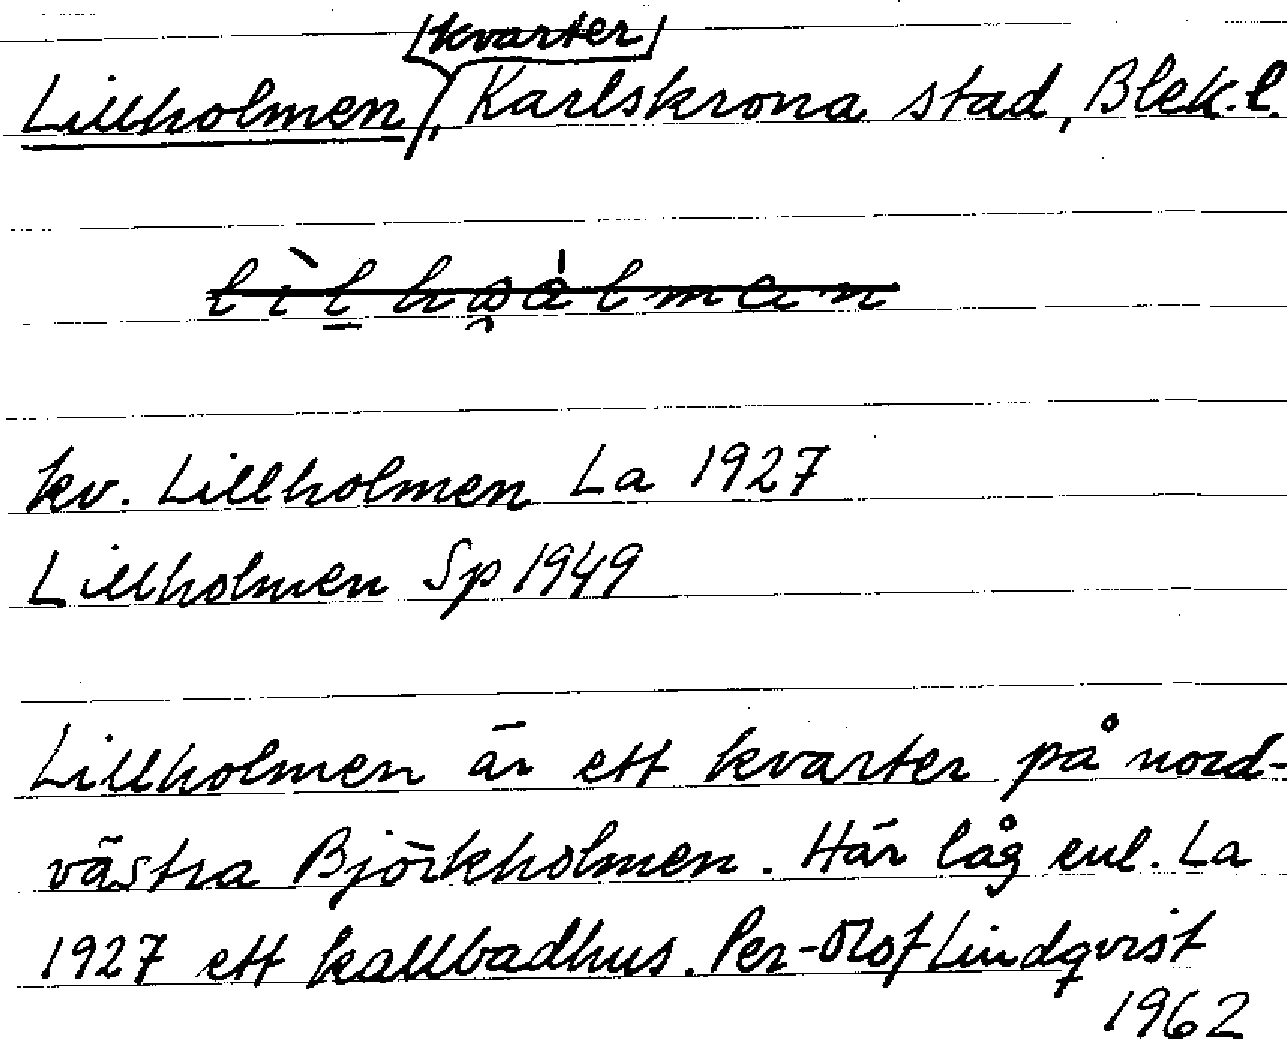 Lillholmen, kvarter, Karlskrona stad, Blek. l.
kv. Lillholmen La 1927
Lillholmen Sp 1949
Lillholmen är ett kvarter på nord-
västra Björkholmen. Här låg enl. La
1927 ett kallbadhus. Per-Olof Lindqvist
1962